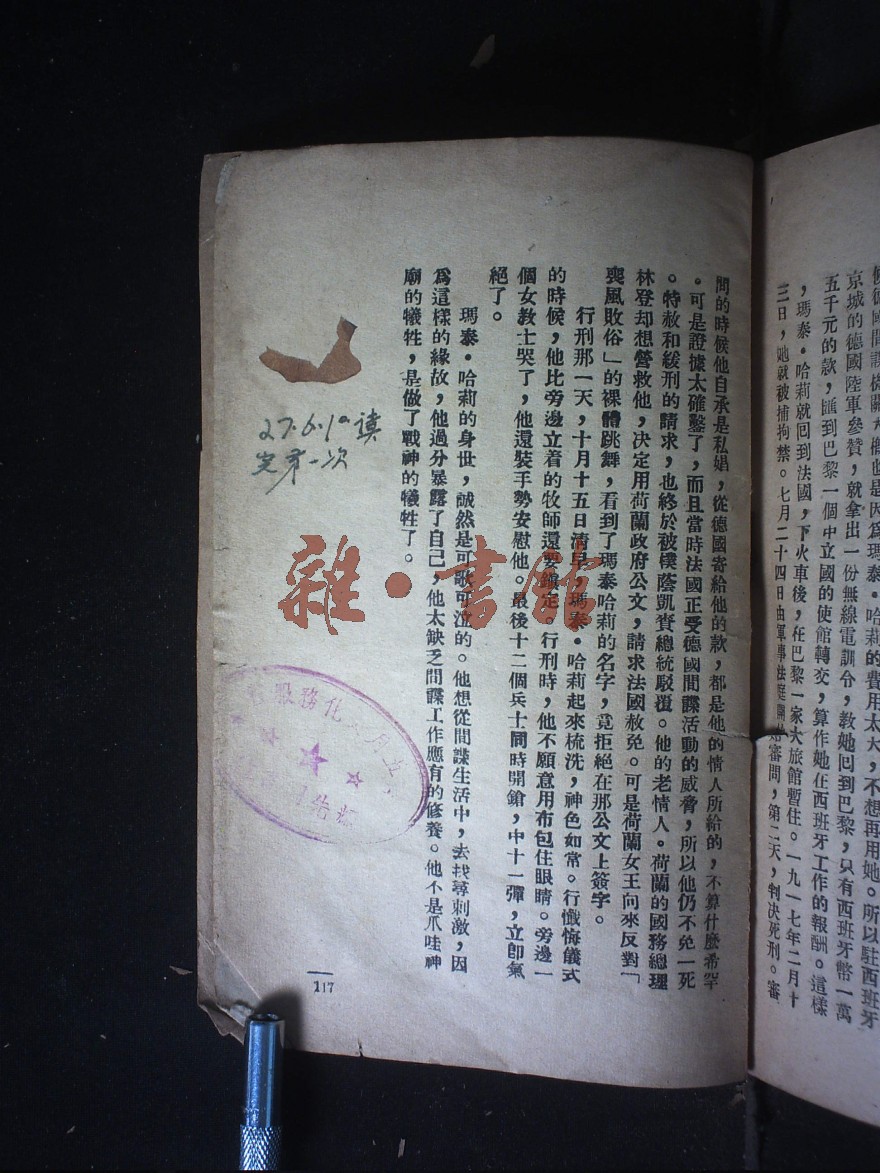 候德國間諜機關大概也是因爲瑪泰·哈莉的費用太大,不想再用她。所以駐西班牙
京城的德國陸軍參贊,就拿出一份無線電訓令,教她回到巴黎,只有西班牙幣一萬
五千元的款,匯到巴黎一個中立國的使館轉交,算作她在西班牙工作的報酬。這樣
,瑪泰·哈莉就回到法國,下火車後,在巴黎一家大旅館暫住。一九一七年二月十
三日,她就被捕拘禁。七月二十四日由軍事法庭開始審問,第二天,判決死刑。審
問的時候他自承是私娼,從德國寄給他的款,都是他的情人所給的,不算什麼希罕
。可是證據太確鑿了,而且當時法國正受德國間諜活動的威脅,所以他仍不免一死
。特赦和緩刑的請求,也終於被樸蔭凱賚總統駁覆。他的老情人。荷蘭的國務總理
林登却想營救他,決定用荷蘭政府公文,請求法國赦免。可是荷蘭女王向來反對「
喪風敗俗」的裸體跳舞,看到了瑪泰哈莉的名字,竟拒絕在那公文上簽字。
行刑那一天,十月十五日清晨,瑪泰·哈莉起來梳洗,神色如常。行懺悔儀式
的時候,他比旁邊立着的牧師還要鎮定。行刑時,他不願意用布包住眼睛。旁邊一
個女教士哭了,他還裝手勢安慰他。最後十二個兵士同時開鎗,中十一彈,立卽氣
絕了。
瑪泰·哈莉的身世,誠然是可歌可泣的。他想從間諜生活中,去找尋刺激,因
爲這樣的緣故,他過分暴露了自己,他太缺乏間諜工作應有的修養。他不是爪哇神
廟的犧牲,是做了戰神的犧牲了。
117
27.6.19讀
完第一次
雜·書館
化務服